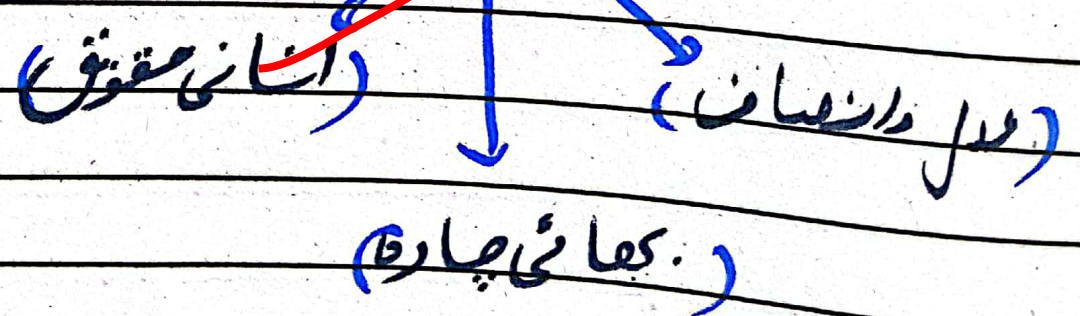 (عدل وانصاف)
(انسانی حقوق)
(بھائی چارہ)